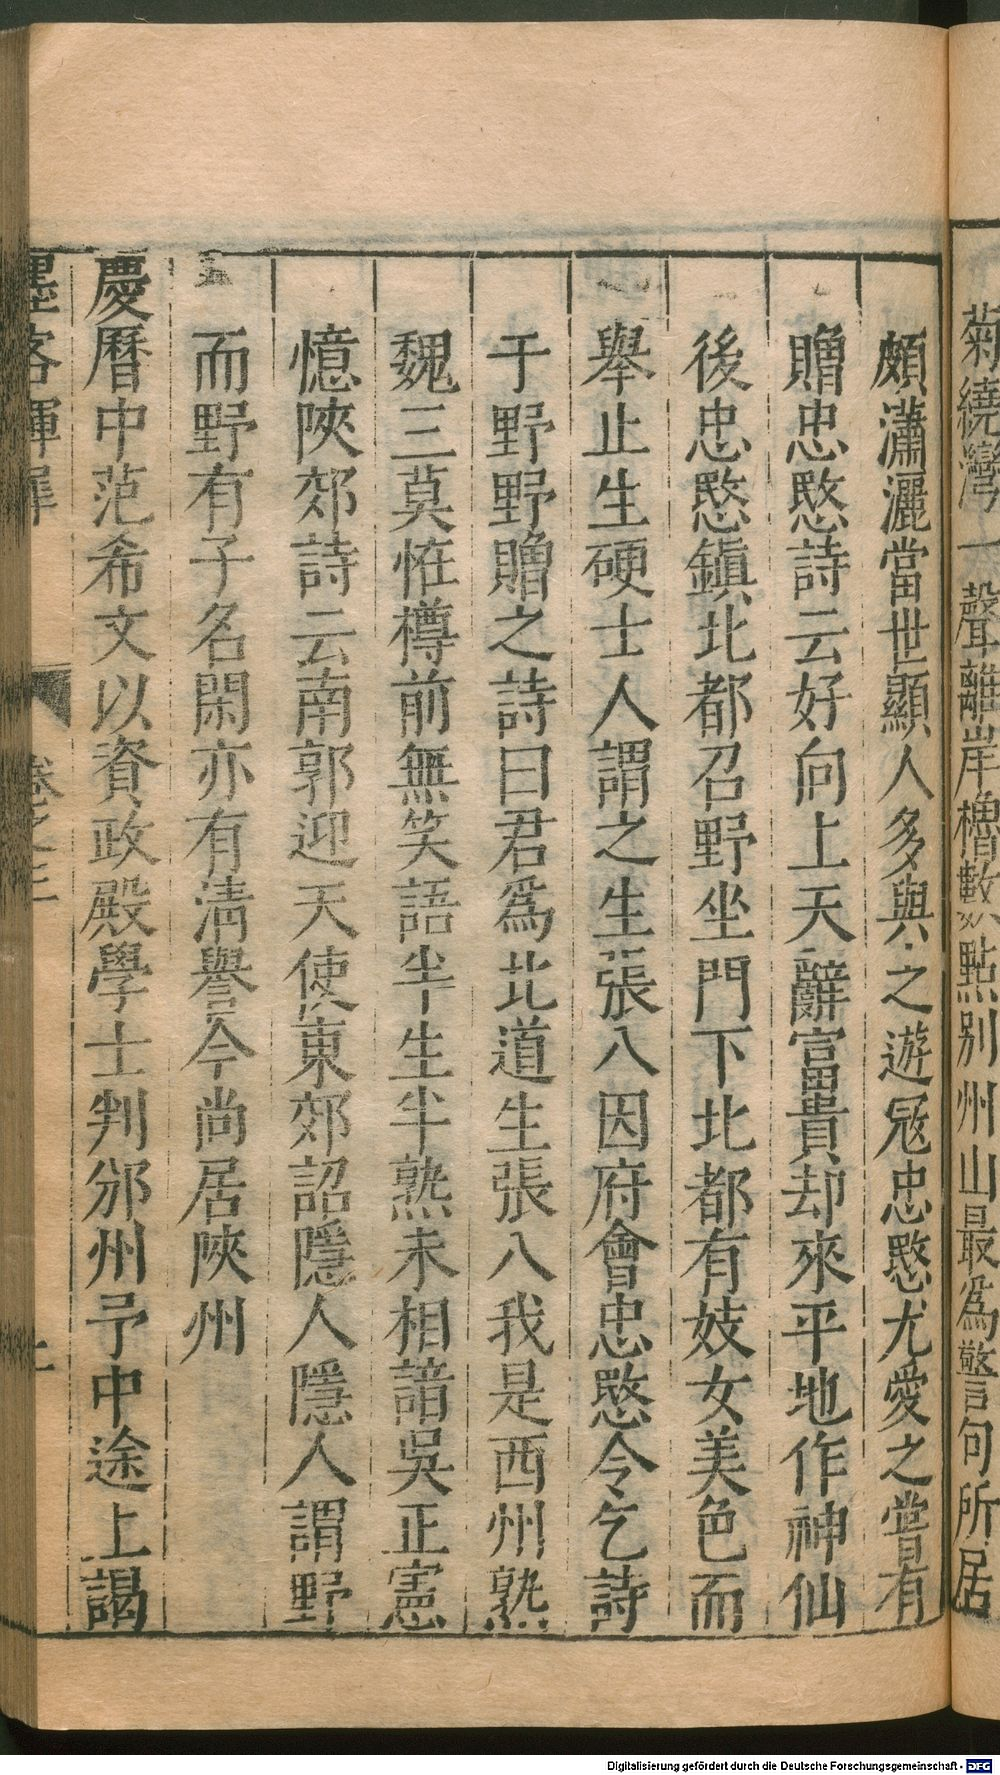 菊繞灣一聲離岸櫓數點別州山最爲警句所居
頗瀟灑當世顯人多與之遊冦忠愍尤愛之嘗有
贈忠愍詩云好向上天辭富貴却來平地作神仙
後忠愍鎭北都召野坐門下北都有妓女美色而
舉止生硬士人謂之生張八因府會忠愍令乞詩
于野野贈之詩曰君爲北道生張八我是西州熟
魏三莫恠樽前無笑語半生半熟未相諳吳正憲
憶陝郊詩云南郭迎天使東郊詔隱人隱人謂野
而野有子名閑亦有清譽今尚居陝州
慶曆中范希文以資政殿學士判邠州予中途上謁
客揮犀 卷之三
Digitalisierung gefördert durch die Deutsche Forschungsgemeinschaft - DFG